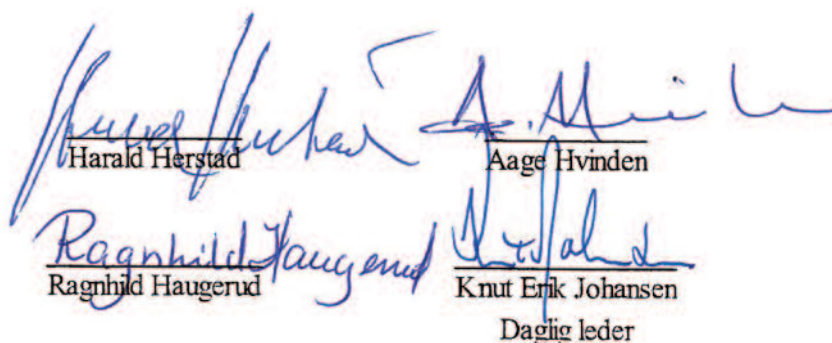 Harald Herstad Aage Hvinden
Ragnhild Haugerud
Ragnhild Haugerud Knut Erik Johansen
Daglig leder